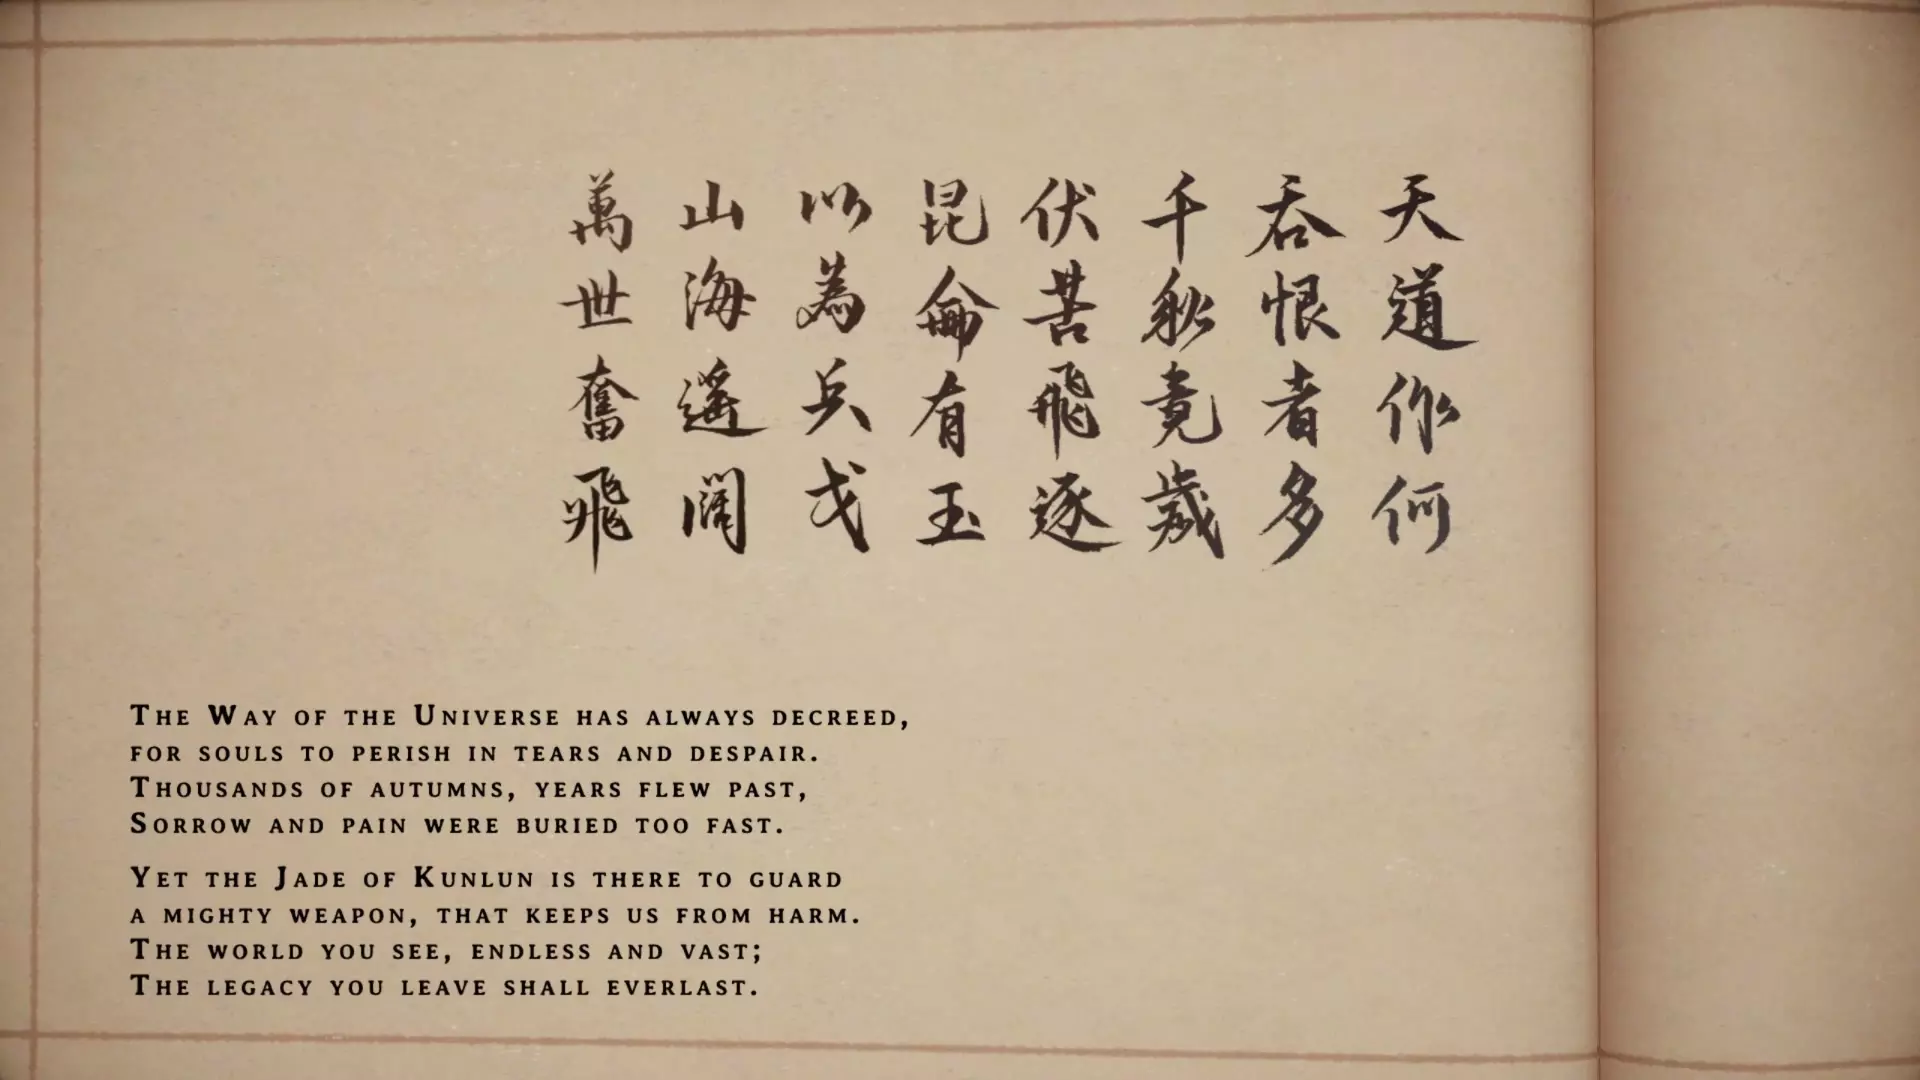 天道作何
吞恨者多
千秋竟歲
伏苦飛逐
昆侖有玉
以為兵戈
山海遥闊
萬世奮飛
The Way of the Universe has always decreed,
for souls to perish in tears and despair.
Thousands of autumns, years flew past,
Sorrow and pain were buried too fast.
Yet the Jade of Kunlun is there to guard
a mighty weapon, that keeps us from harm.
The world you see, endless and vast;
The legacy you leave shall everlast.